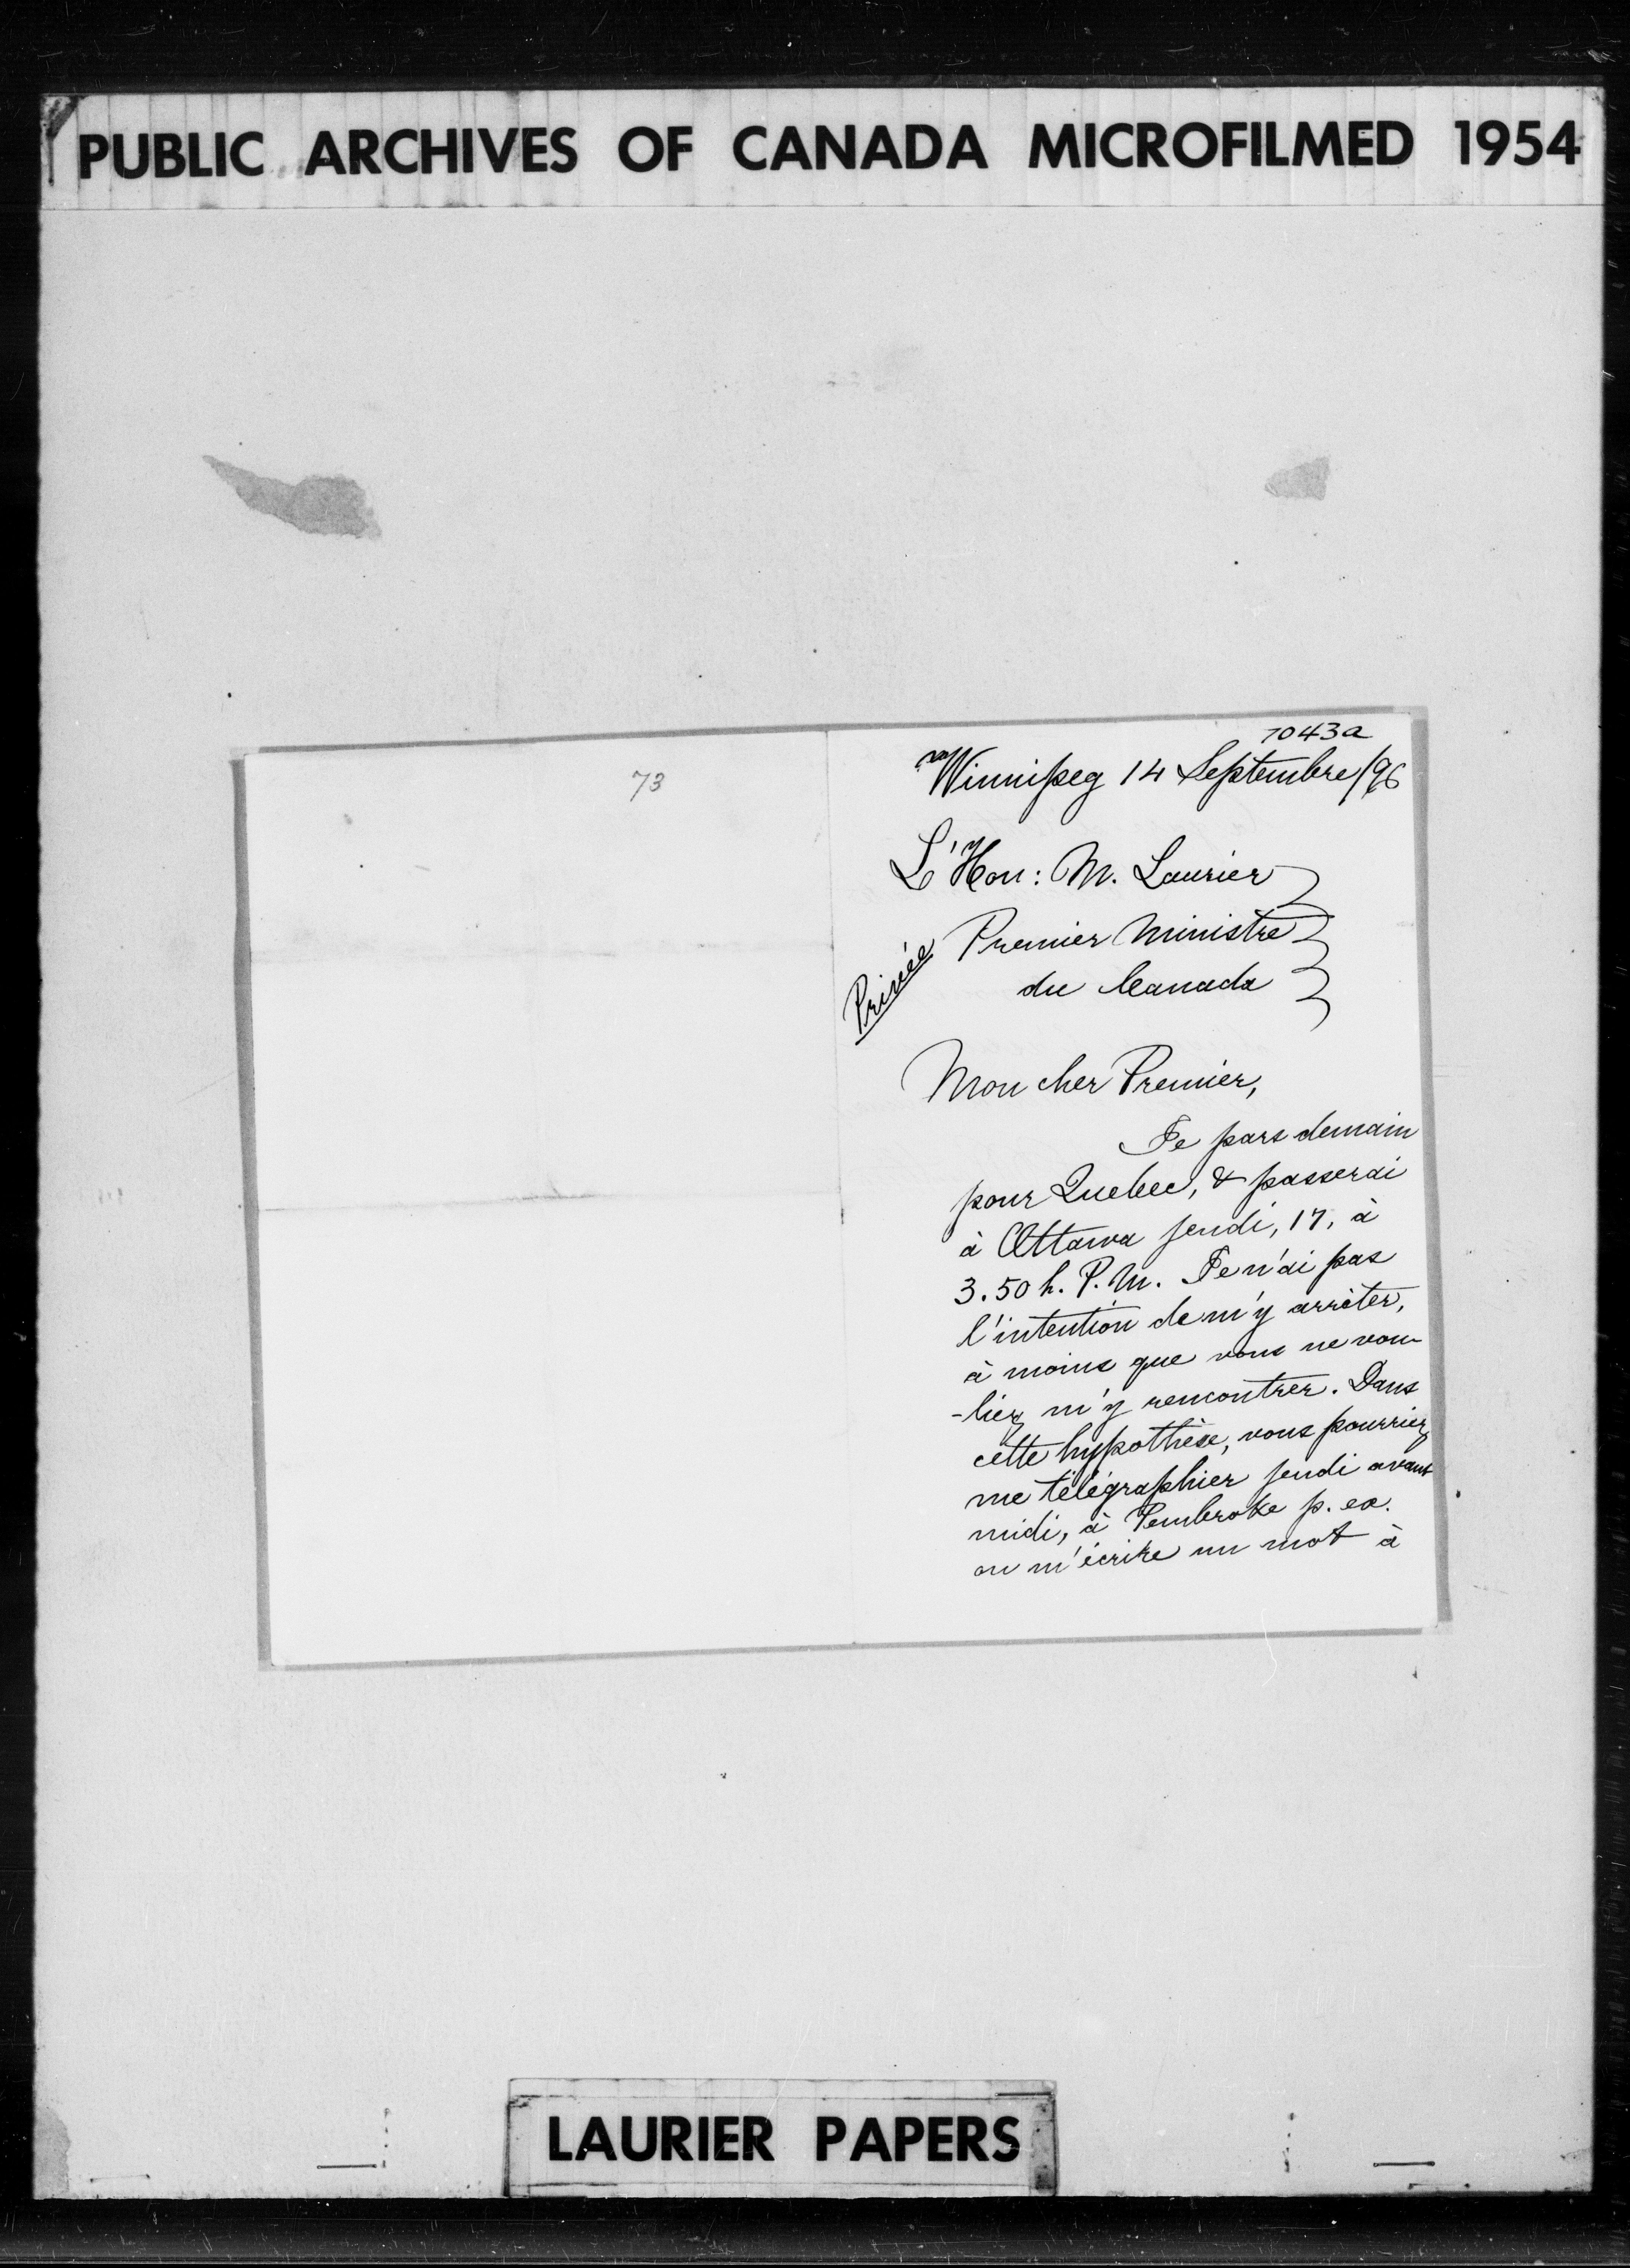 PUBLIC ARCHIVES OF CANADA MICROFILMED 1954
7043a
73
Winnipeg 14 Septembre/96
L'Hon: M. Laurier
Premier Ministre
du Canada
Privée
Mon cher Premier,
Je pars demain
pour Quebec, & passerai
à Ottawa jeudi, 17, à
3.50 h. P.M. Je n'ai pas
l'intention de m'y arrêter,
à moins que vous ne vou-
-liez m'y rencontrer. Dans
cette hypothèse, vous pourriez
me télégraphier jeudi avant
midi, à Pembroke p. ex.
ou m'écrire un mot à
LAURIER PAPERS